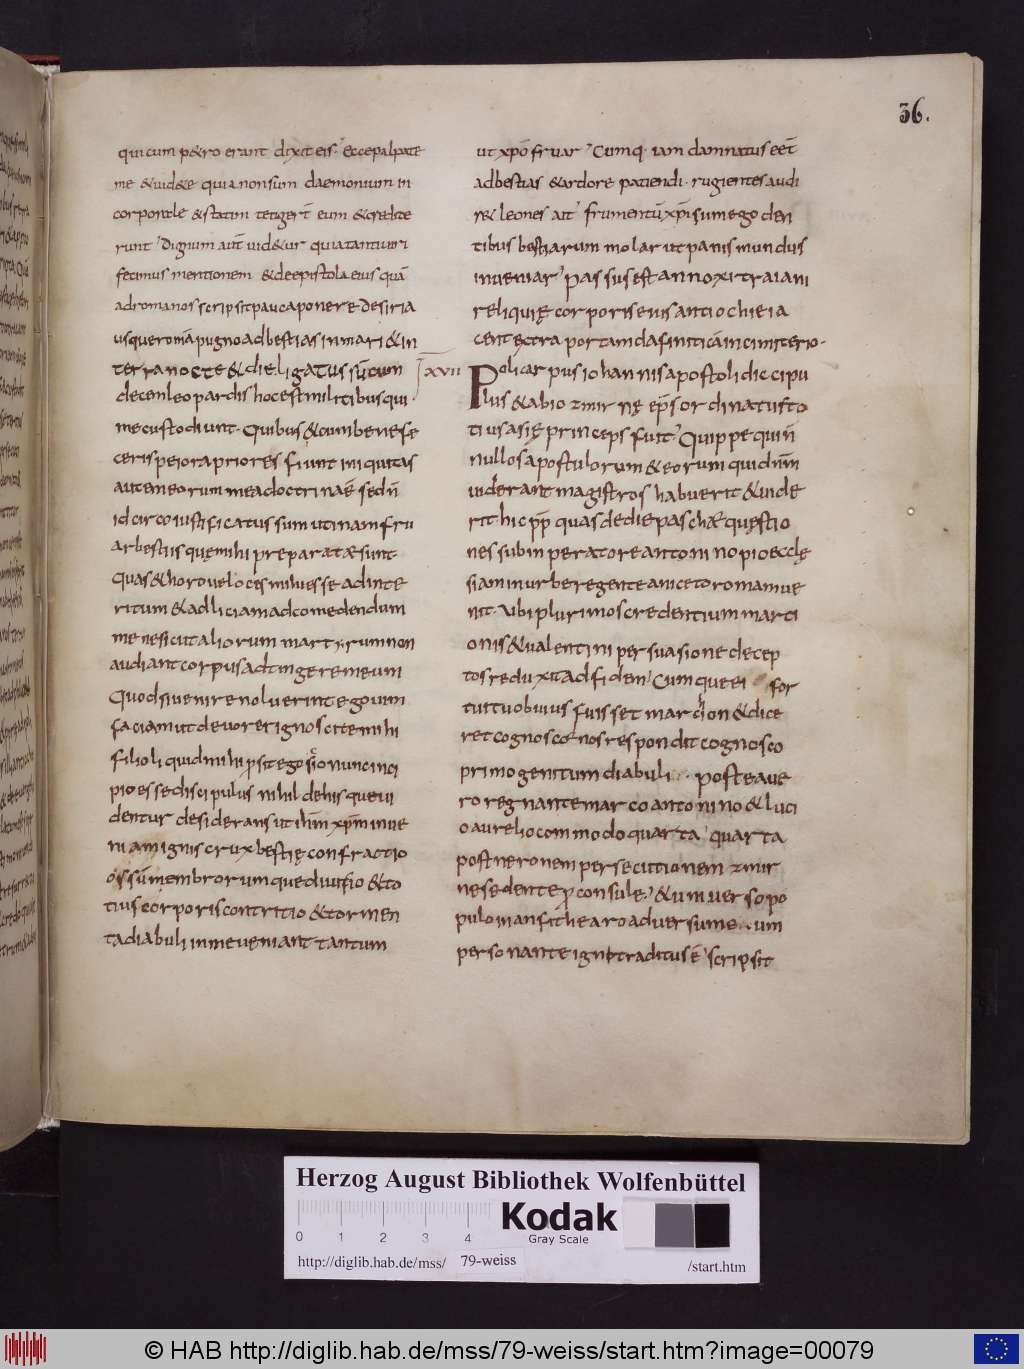 36.
qui cum p&ro erant dixit eis. Ecce palpate
me &uid&e quia non sum daemonium in
corporale &statim tetiger̄ eum &credide
runt Dignum aut̄ uid&ur quia tanti uiri
fecimus mentionem &de epistola eius quā
ad romanos scripsit pauca ponere De siria
usque romā pugno ad bestias in mari &in
terra nocte &die ligatus sū cum
decem leopardis hoc est militibus qui
me custodiunt. Quibus &cum benefe
ceris peiora priores fiunt iniquitas
autem eorum mea doctrina ē sed n̄
idcirco iustificatus sum utinam fru
ar bestiis quę mihi preparatae sunt
quas &horo ueloces mihi esse ad inte
ritum &adliciam ad comedendum
me ne sicut aliorum martyrum non
audiant corpus adtingere meum
Quod si uenire noluerint ego uim
faciam ut deuorer ignoscite mihi
filioli quid mihi prosit ego scio nunc inci
pio esse discipulus nihil de his que ui
dentur desiderans ut ihm̄ xpm̄ inue
niam ignis crux bestię confractio
ossū membrorum que diuisio &to
tius corporis contritio &tormen
ta diabuli in me ueniant tantum
ut xpō fruar Cumq. iam damnatus eēt
ad bestias &ardore patiendi. rugientes audi
r& leones ait frumentū xp̄i sum ego den
tibus bestiarum molar ut panis mundus
inueniar Passus est anno xi traiani
reliquię corporis eius antiochie ia
cent ęxtra portam dafniticā in cimiterio.
xvii
Policarpus iohannis apostoli discipu
lus &ab io zmirnę ep̄s ordinatus to
tius asię princeps fuit Quippe qui n̄
nullos apostulorum &eorum qui dn̄m
uiderant magistros habuerit &uide
rit hic p̄p̄ quasde die paschae quęstio
nes sub inperatore antonino pio ecclę
siam in urbe regente aniceto romam ue
nit. Ubi plurimos credentium marti
onis &ualentini persuasione decep
tos reduxit ad fidem Cumque ei for
tuitu obuius fuisset marchion &dice
ret cognosce nos respondit cognosco
primogenitum diabuli. Postea ue
ro regnante marco antonino &luci
o aurelio commodo quarta quarta
post neronem persecutionem zmir
ne sedente proconsule &uniuerso po
pulo in anfitheatro aduersum e um
personante igni traditus ē scripsit
Herzog August Bibliothek Wolfenbüttel
0 1 2 3 4
Kodak
Gray Scale
http://diglib.hab.de/mss/ 79-weiss /start.htm
© HAB http://diglib.hab.de/mss/79-weiss/start.htm?image=00079